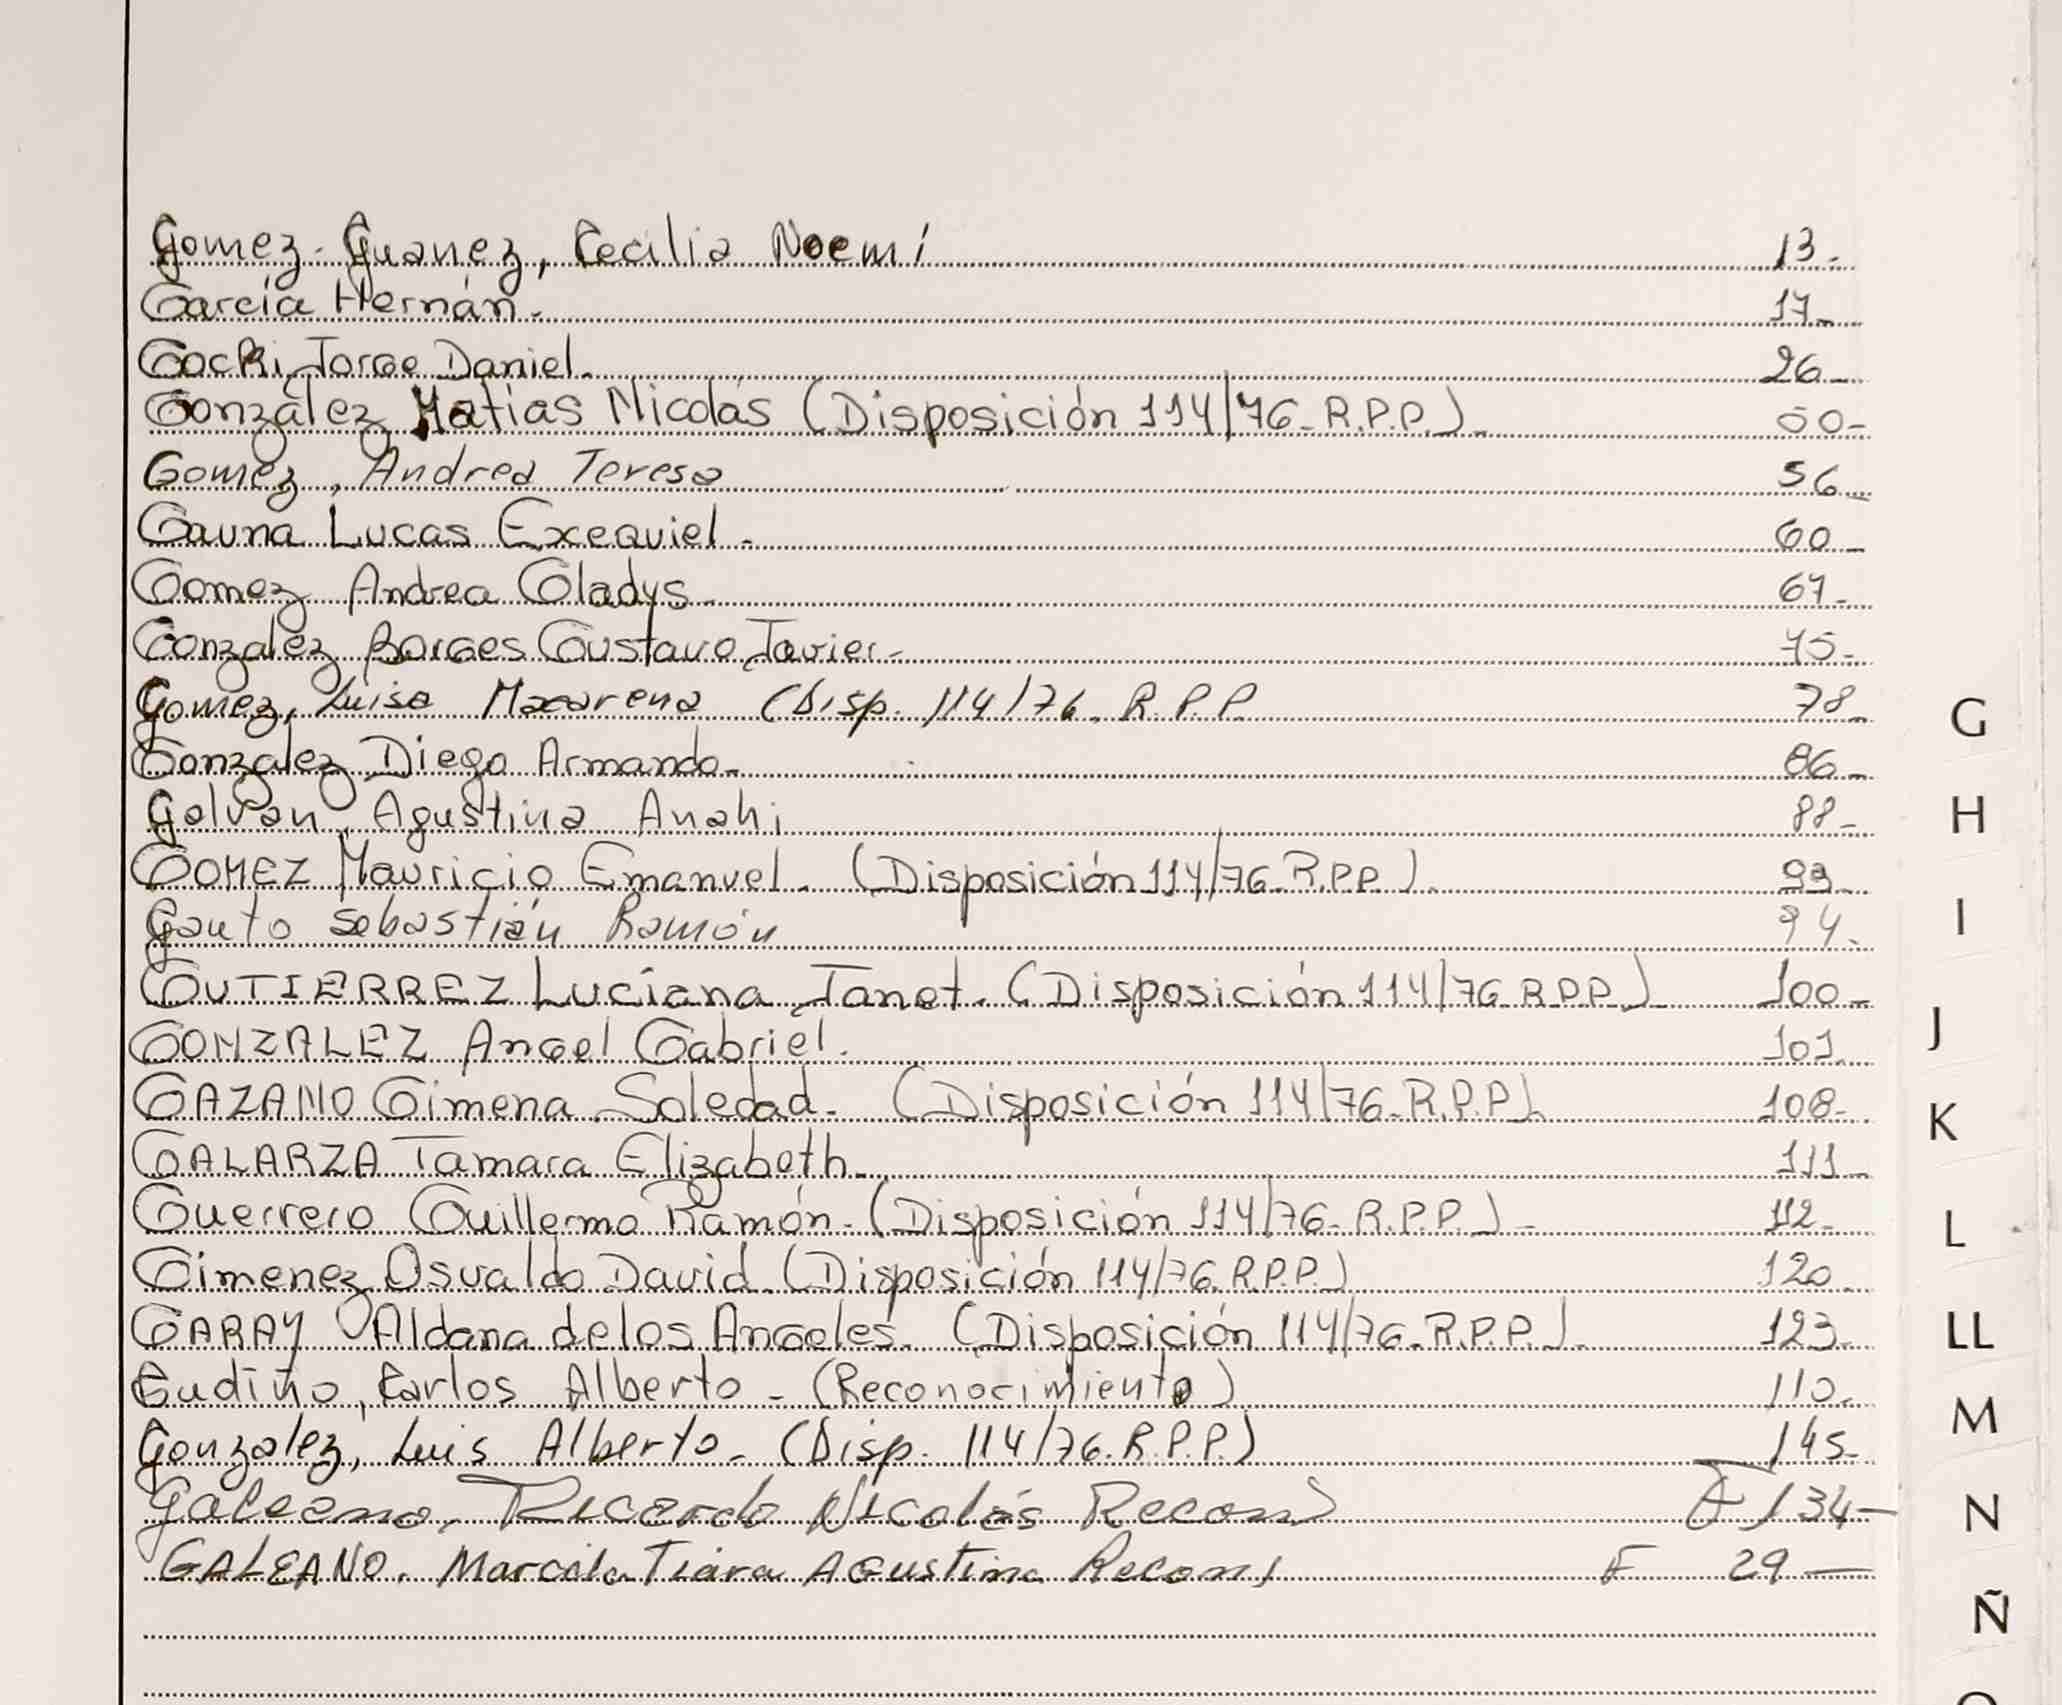 Gomez Guanez, Cecilia Noemí 13-
García Hernán. 17-
Gochi Jorge Daniel. 26-
González Matías Nicolás (Disposición 114/76 R.P.P.) 50-
Gomez, Andrea Teresa 56-
Gauna Lucas Exequiel - 60-
Gomez Andrea Gladys 67-
González Borges Gustavo Javier- 75-
Gomez, Luisa Macarena (Disp. 114/76. R.P.P. 78-
González Diego Armando- 86-
Galvan, Agustina Anahi 88-
GOMEZ Mauricio Emanuel. (Disposición 114/76 R.P.P.) 93-
Gauto Sebastián Ramón 94.
GUTIERREZ Luciana Janet. (Disposición 114/76 R.P.P.) 100-
GONZALEZ Angel Gabriel. 101.
GAZANO Gimena Soledad. (Disposición 114/76 R.P.P.) 108-
GALARZA Tamara Elizabeth. 111-
Guerrero Guillermo Ramón. (Disposición 114/76 R.P.P.) - 112-
Gimenez Osvaldo David. (Disposición 114/76. R.P.P.) 120.
GARAY Aldana de los Angeles. (Disposición 114/76-R.P.P.)- 123-
Gudiño, Carlos Alberto - (Reconocimiento) 110.
Gonzalez, Luis Alberto - (Disp. 114/76. R.P.P.) 145-
Galeano, Ricardo Nicolás Recon F 134-
GALEANO. Marcela Tiara Agustina Recons F 29-
G
H
I
J
K
L
LL
M
N
Ñ